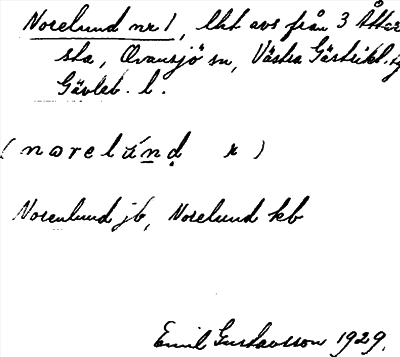 Norelund nr 1, lht avs från 3 Åttar
sta, Ovansjö sn, Västra Gästrikl.
Gävleb. l.
(norelúnd r)
Norenlund jb, Norelund kb
Emil Gustavsson 1929.